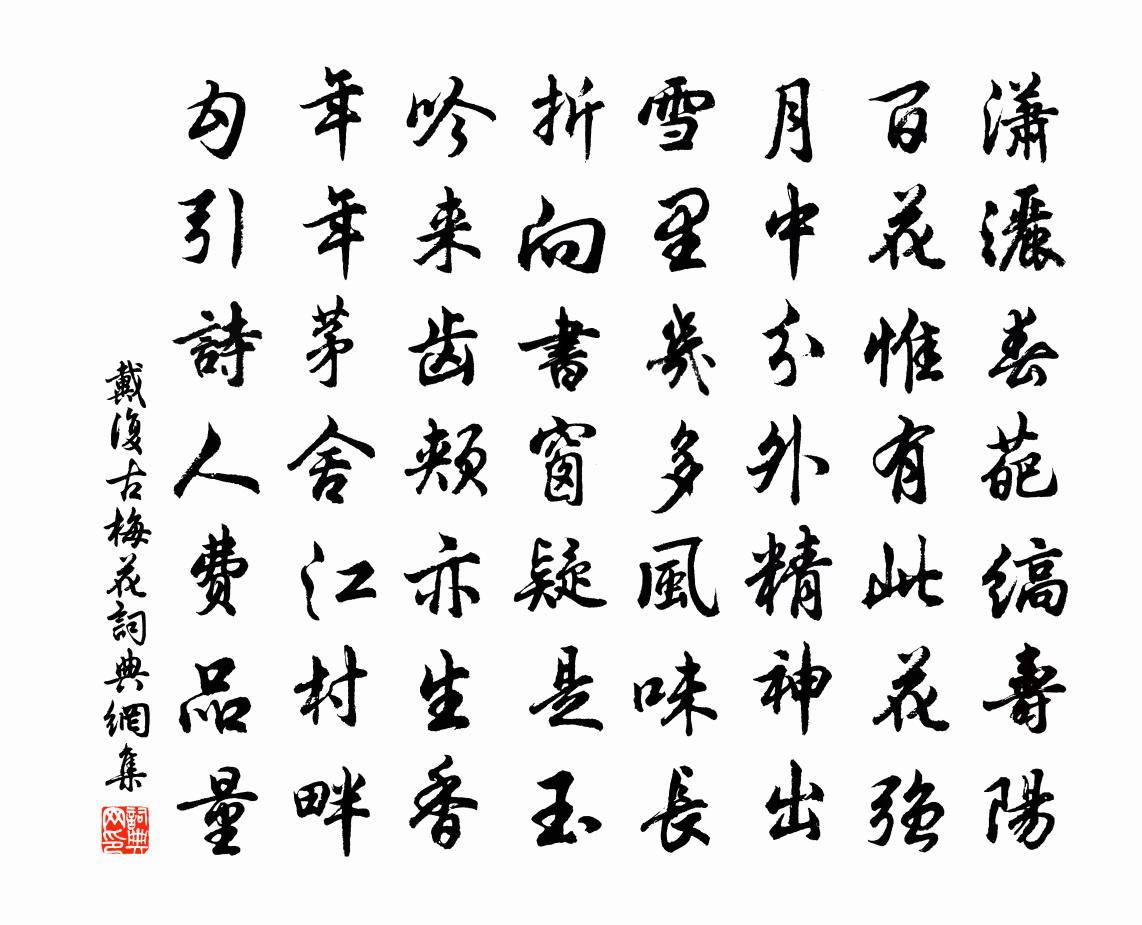 瀟灑春葩縞壽陽
百花惟有此花強
月中分外精神出
雪里幾多風味長
折向書窗疑是玉
吟来齿頰亦生香
年年茅舍江村畔
勾引詩人費品量
戴復古梅花詞典網集
詞典网印